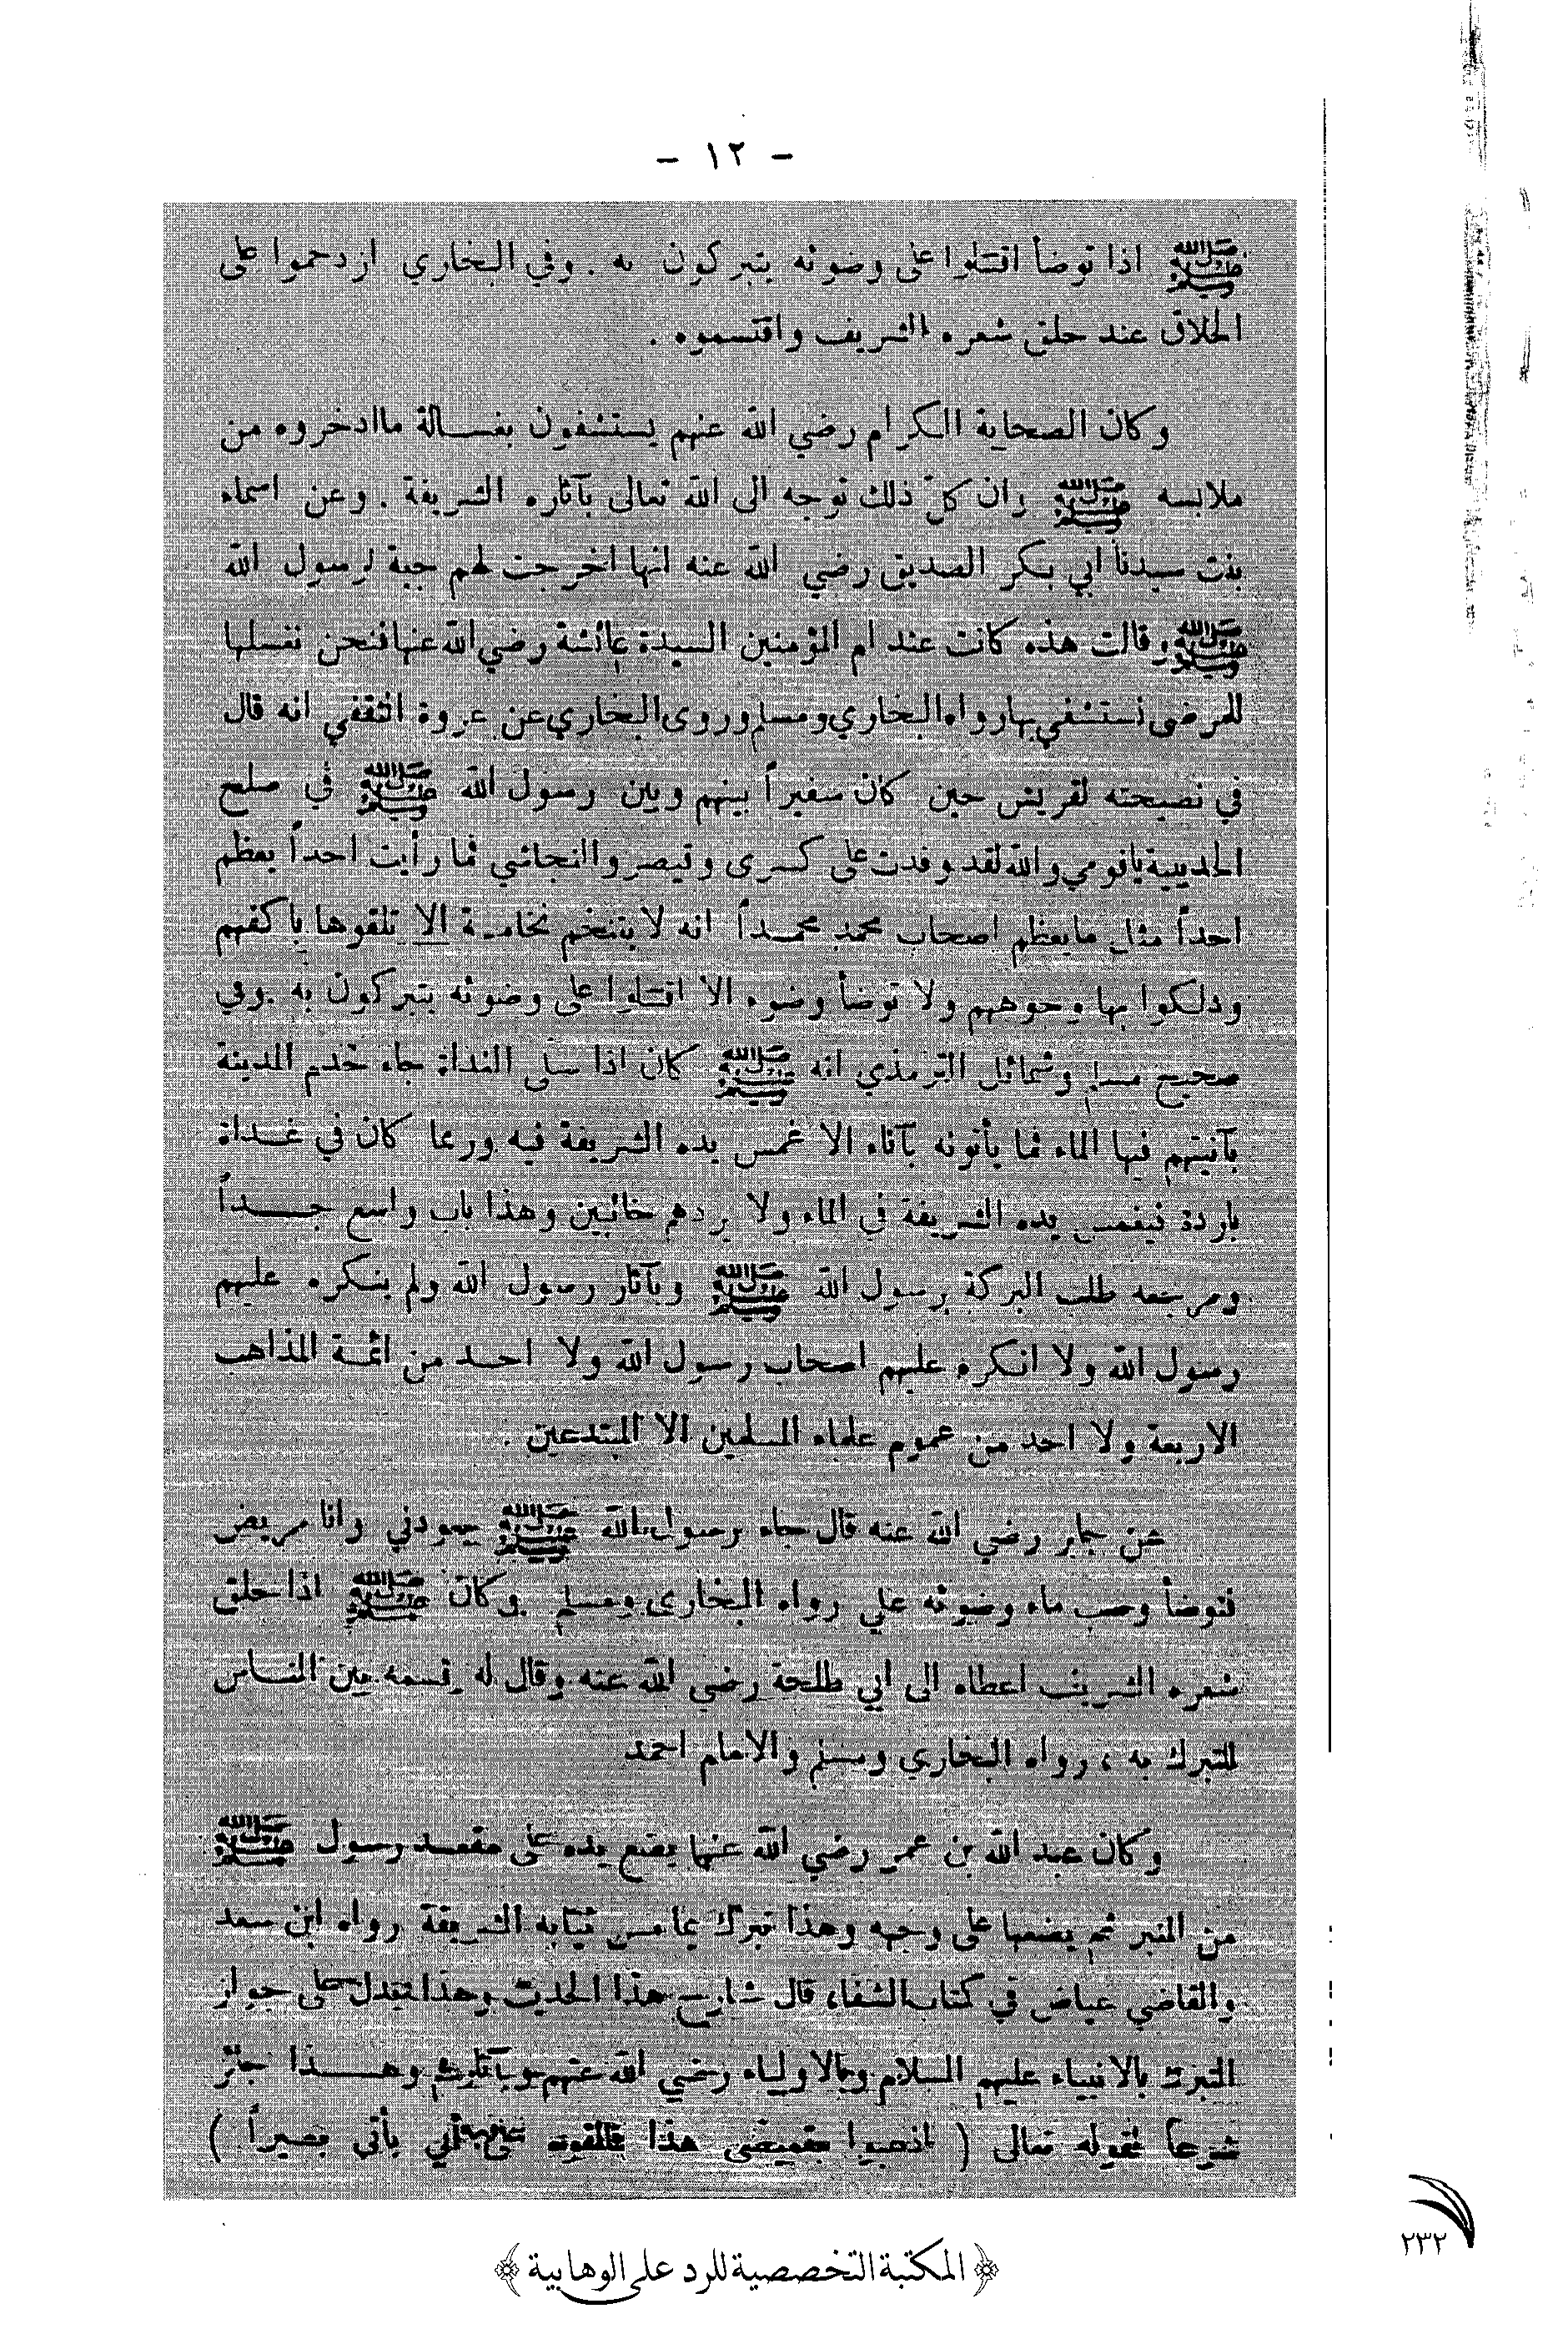 - ١٢ -
ﷺ اذا توضأ اقتتلوا على وضوئه يتبركون به . وفي البخاري ازدحموا على
الحلاق عند حلق شعره الشريف واقتسموه .
وكان الصحابة الكرام رضي الله عنهم يستشفون بغسالة ماادخروه من
ملابسه ﷺ وان كل ذلك توجه الى الله تعالى بآثاره الشريفة . وعن اسماء
بنت سيدنا ابي بكر الصديق رضي الله عنه انها اخرجت لهم جبة لرسول الله
ﷺ وقالت هذه كانت عند ام المؤمنين السيدة عائشة رضي الله عنها فنحن نغسلها
للمرضى نستشفي بها رواه البخاري ومسلم وروى البخاري عن عروة الثقفي انه قال
في نصيحته لقريش حين كان سفيراً بينهم وبين رسول الله ﷺ في صلح
الحديبية ياقومي والله لقد وفدت على كسرى وقيصر والنجاشي فما رأيت احداً يعظم
احداً مثل مايعظم اصحاب محمد محمداً انه لا يتنخم نخامة الا تلقوها باكفهم
ودلكوا بها وجوههم ولا توضأ وضوء الا اقتتلوا على وضوئه يتبركون به . وفي
صحيح مسلم وشمائل الترمذي انه ﷺ كان اذا صلى الغداة جاء خدم المدينة
بآنيتهم فيها الماء فما يأتونه بآناء الا غمس يده الشريفة فيه وربما كان في غداة
باردة فيغمس يده الشريفة في الماء ولا يردهم خائبين وهذا باب واسع جداً
ومرجعه طلب البركة برسول الله ﷺ وبآثار رسول الله ولم ينكره عليهم
رسول الله ولا انكره عليهم اصحاب رسول الله ولا احد من ائمة المذاهب
الاربعة ولا احد من عموم علماء المسلمين الا المبتدعين .
عن جابر رضي الله عنه قال جاء رسول الله ﷺ يعودني وانا مريض
فتوضأ وصب ماء وضوئه علي رواه البخاري ومسلم وكان ﷺ اذا حلق
شعره الشريف اعطاه الى ابي طلحة رضي الله عنه وقال له قسمه بين الناس
للتبرك به ، رواه البخاري ومسلم والامام احمد
وكان عبد الله بن عمر رضي الله عنهما يضع يده على مقعد رسول ﷺ
من المنبر ثم يضعها على وجهه وهذا تبرك بما مس ثيابه الشريفة رواه ابن سعد
والقاضي عياض في كتاب الشفاء قال شارح هذا الحديث وهذا يدل على جواز
التبرك بالانبياء عليهم السلام وبالاولياء رضي الله عنهم وبآثارهم وهذا جائز
شرعاً لقوله تعالى ( اذهبوا بقميصي هذا فالقوه على وجه ابي يأتي بصيراً )
٢٣٢
﴿ المكتبة التخصصية للرد على الوهابية ﴾